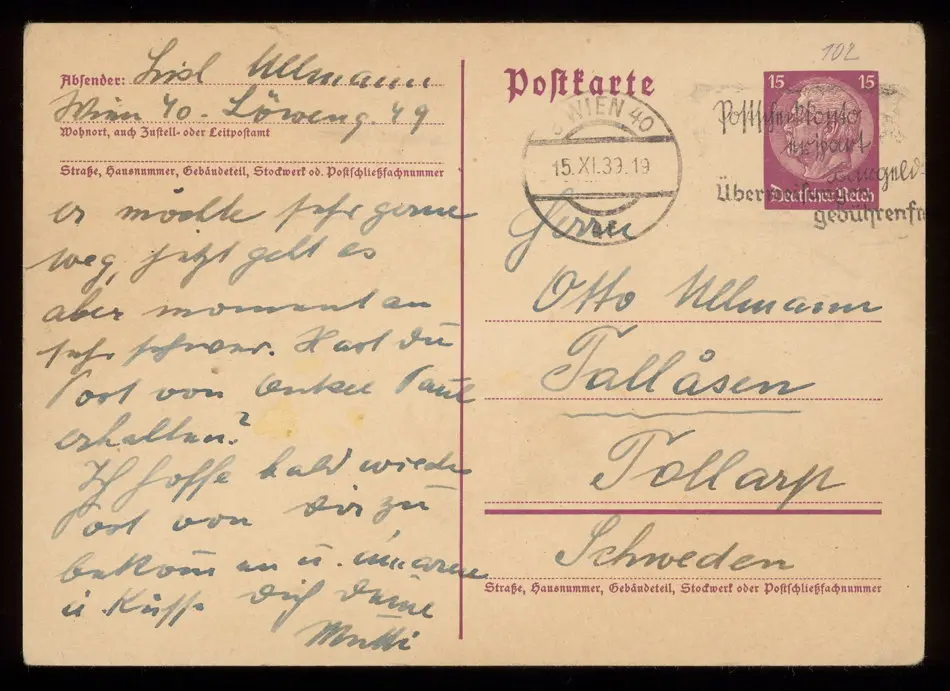 Absender: Lisl Ullmann
Wien 40. Löweng. 49
Wohnort, auch Zustell- oder Leitpostamt
Straße, Hausnummer, Gebäudeteil, Stockwerk od. Postschließfachnummer
er möchte sehr gerne
weg, jetzt geht es
aber momentan
sehr schwer. Hast du
Post von Onkel Paul
erhalten?
Ich hoffe bald wieder
Post von dir zu
bekommen u. umarme
u. Küsse dich deine
Mutti
Postkarte
102
15 15
Deutsches Reich
WIEN 40
15.XI.39.19
Postscheckkonto
erspart
Überweisungen
gebührenfr
Herrn
Otto Ullmann
Tallåsen
Tollarp
Schweden
Straße, Hausnummer, Gebäudeteil, Stockwerk oder Postschließfachnummer